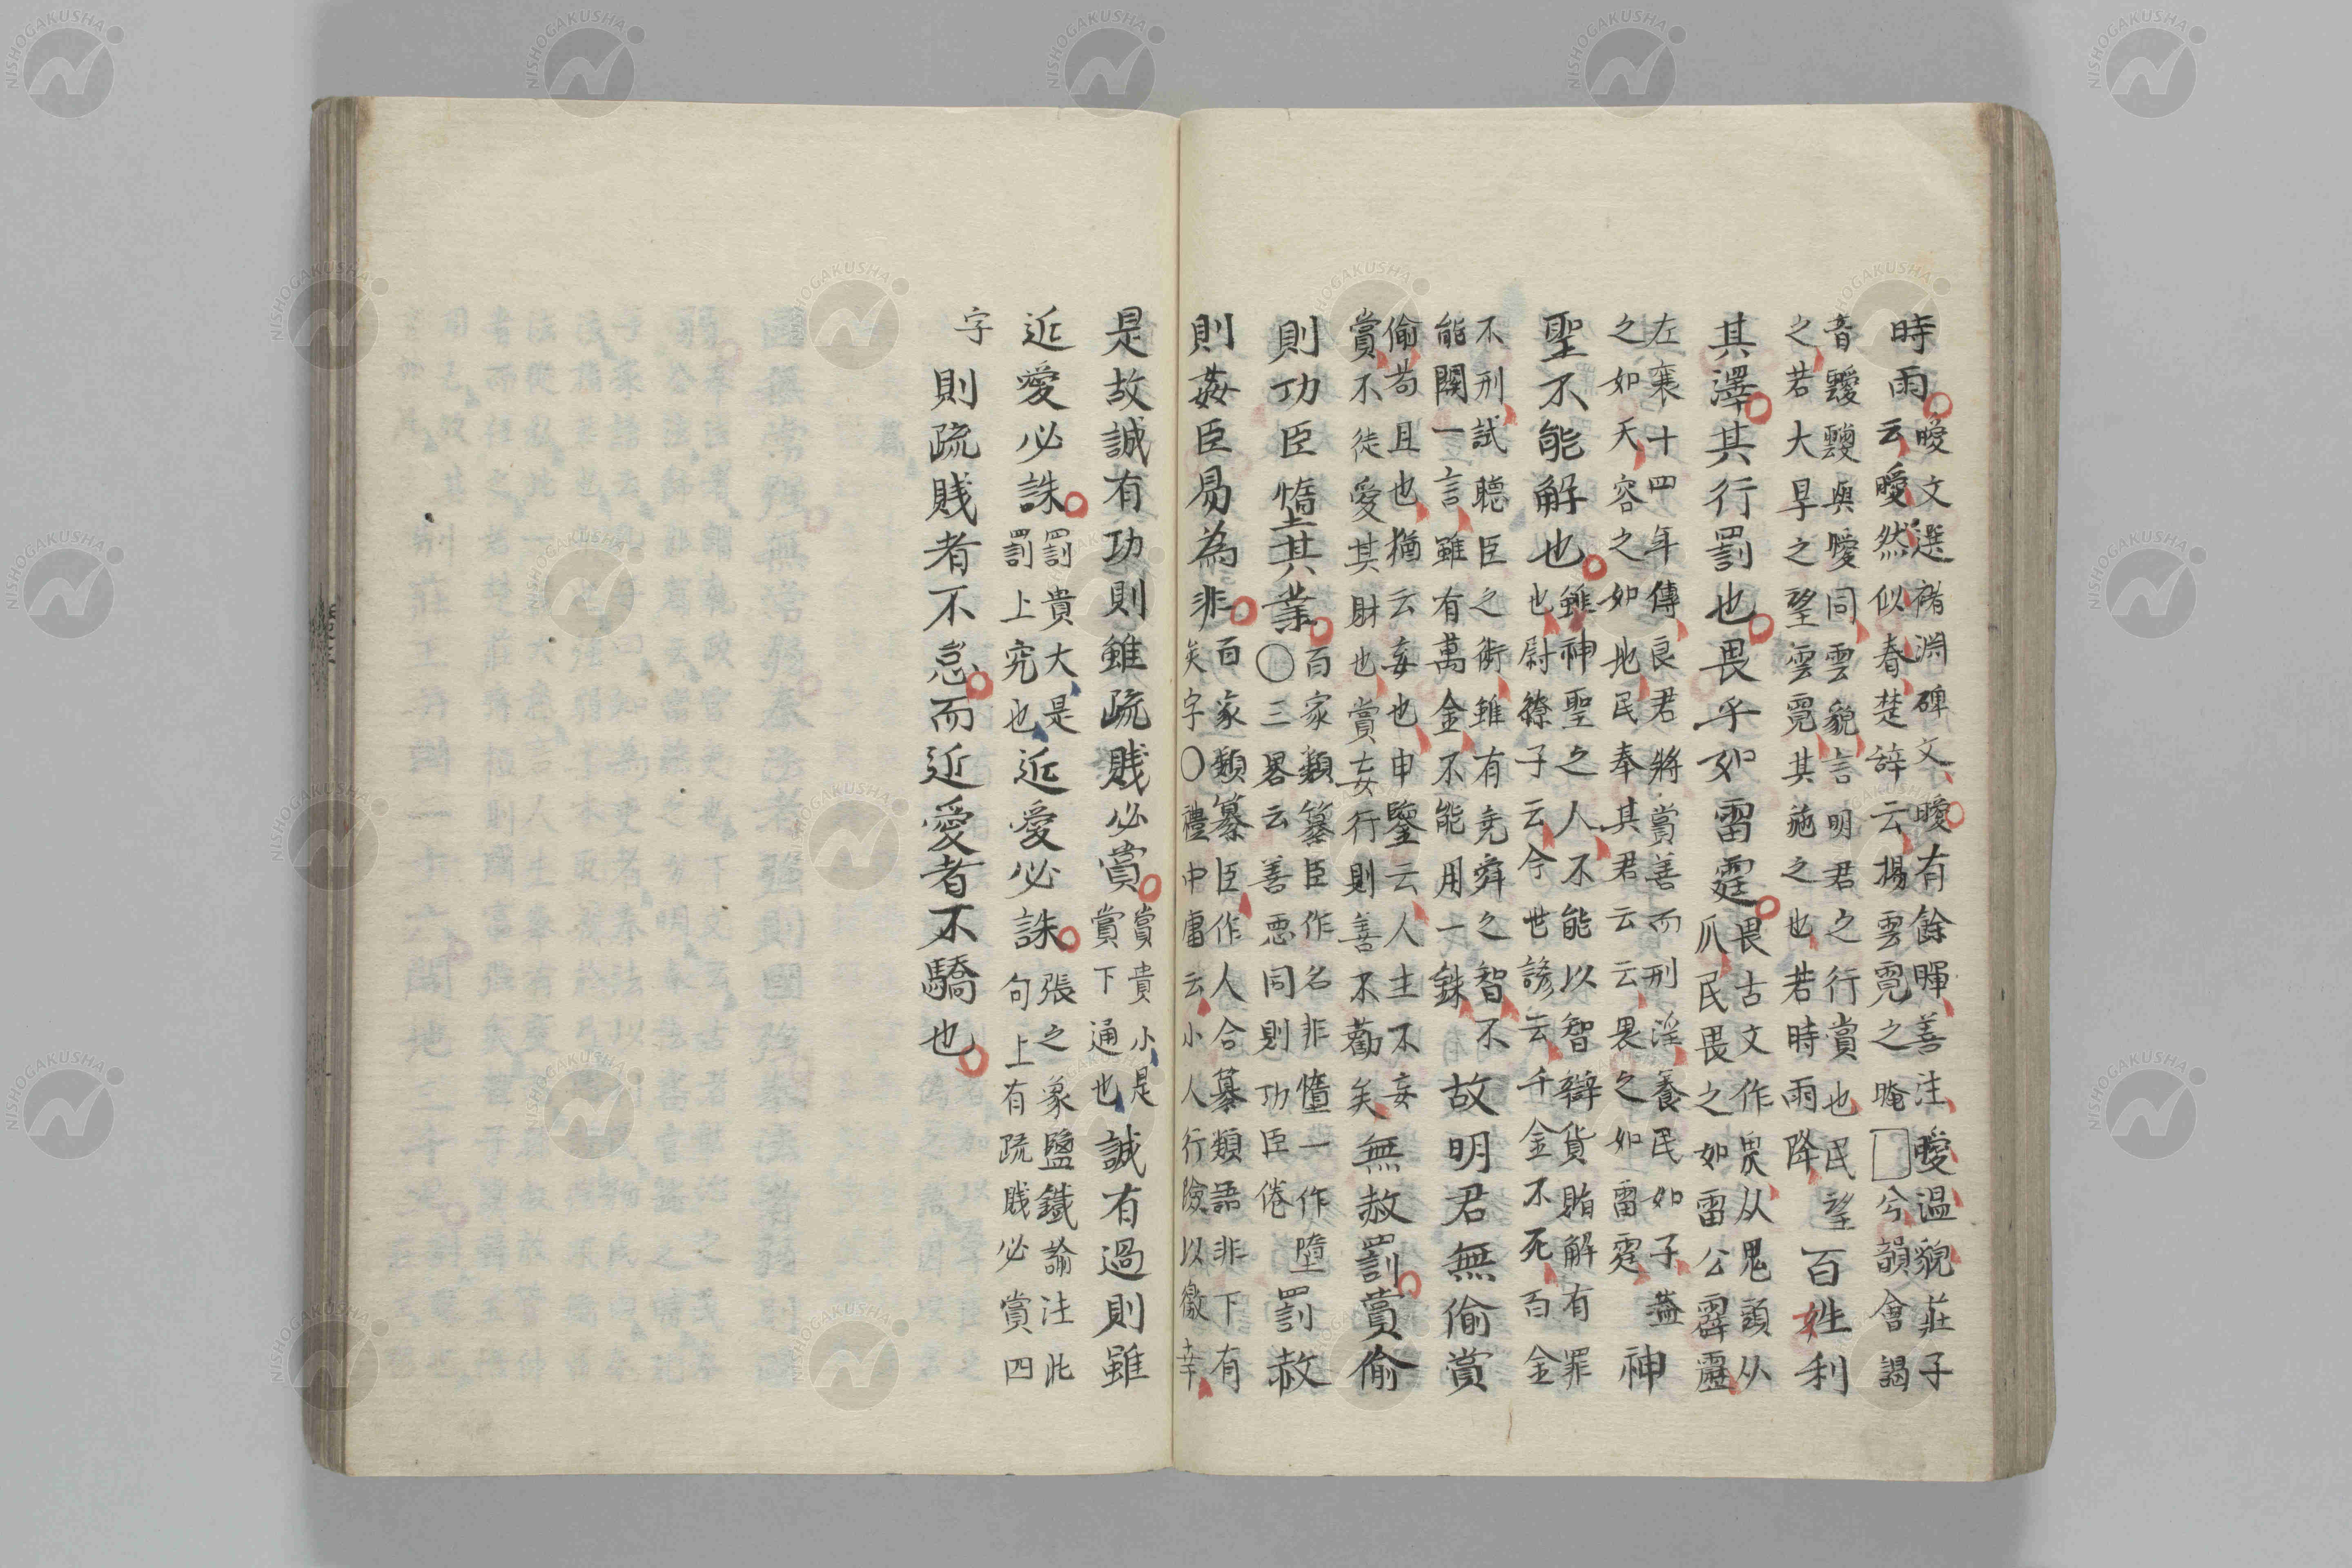 時雨曖文選褚淵碑文曖有餘暉善注曖温貌莊子
云曖然似春楚辞云揚雲霓之晻□兮韻會謁
音靉靉與曖同雲貌言明君之行賞也民望
之若大旱之望雲霓其施之也若時雨降百姓利
其澤其行罰也畏乎如雷霆畏古文作从鬼頭从
爪民畏畏之如雷公霹靂
左襄十四年傳良君將賞善而刑淫養民如子蓋
之如天容之如地民奉其君云云畏之如雷霆神
聖不能解也雖神聖之人不能以智辯貨賄解有罪
也尉繚子云今世諺云千金不死百金
不刑試聽臣之術雖有堯舜之智不
能關一言雖有萬金不能用一銖故明君無偷賞
偷苟且也猶云妄也申鑒云人主不妄
賞不徒愛其財也賞妄行則善不勸矣無赦罰賞偷
則功臣惰其業百家類纂臣作名非惰一作墮
〇三畧云善悪同則功臣倦罰赦
則姦臣易為非百家類纂臣作人合纂類語非下有
矣字〇禮中庸云小人行險以徼幸
是故誠有功則雖疏賤必賞賞貴小是
賞下通也誠有過則雖
近愛必誅罰貴大是
罰上究也近愛必誅張之象鹽鐵論注此
句上有疏賤必賞四
字則疏賤者不怠而近愛者不驕也